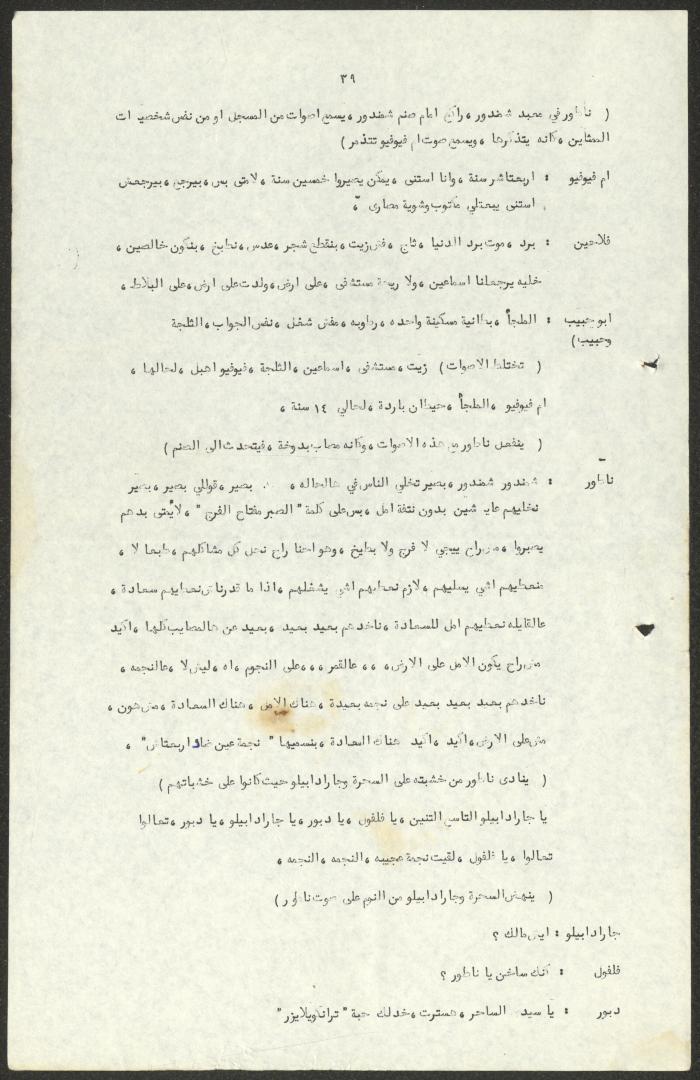 ٣٩
( ناطور في معبد شمندور ، راكع امام صنم شمندور ، يسمع اصوات من المسجل او من نفس شخصيات
الممثلين ، كانه يتذكرها ، ويسمع صوت ام فيوفيو تتذمر )
ام فيوفيو : اربعتاشر سنة ، وانا استنى ، يمكن يصيروا خمسين سنة ، لامتى بس ، بيرجع ، بيرجعش
استنى يبعتلي مكتوب وشوية مصارى ،
فلاحين : برد ، موت برد الدنيا ، ثلج ، فش زيت ، بنقطع شجر ، عدس ، نطبخ ، بنكون خالصين ،
خليه يرجعلنا اسماعين ، ولا ريحة مستشفى ، على ارض ، ولدت على ارض ، على البلاط ،
ابو حبيب : الملجأ ، بطانية مسكينة واحده ، رطوبه ، مفش شغل ، نفس الجواب ، الثلجة
وحبيب)
( تختلط الاصوات ) زيت ، مستشفى ، اسماعين ، الثلجة ، فيوفيو اهبل ، لحالها ،
ام فيوفيو ، الملجأ ، حيطان باردة ، لحالي ١٤ سنة ،
( ينفعل ناطور من هذه الاصوات ، وكانه مصاب بدوخة ، فيتحدث الى الصنم )
ناطور : شمندور شمندور ، بصير تخلي الناس في هالحاله ، بصير ، قوللي بصير ، بصير
نخليهم عايشين بدون نتفة امل ، بس على كلمة " الصبر مفتاح الفرج " ، لأيمتى بدهم
يصبروا ، مش راح ييجي لا فرج ولا بطيخ ، وهو احنا راح نحل كل مشاكلهم ، طبعا لا ،
منعطيهم اشي يسليهم ، لازم نعطيهم اشي يشغلهم ، اذا ما قدرناش نعطيهم سعادة ،
عالقليله نعطيهم امل للسعادة ، ناخدهم بعيد بعيد ، بعيد عن هالمصايب كلها ، اكيد
مش راح يكون الامل على الارض ،، عالقمر ،،، على النجوم ، اه ، ليش لا ، عالنجمه ،
ناخدهم بعيد بعيد بعيد على نجمه بعيدة ، هناك الامل ، هناك السعادة ، مش هون ،
مش على الارض ، اكيد ، اكيد هناك السعادة ، بنسميها " نجمة عين اربعتاش " ،
( ينادى ناطور من خشبته على السحرة وجارادابيلو حيث كانوا على خشباتهم )
يا جارادابيلو التاسع التنين ، يا فلفول ، يا دبور ، يا جارادابيلو ، يا دبور ، تعالوا
تعالوا ، يا فلفول ، لقيت نجمة عجيبه ، النجمه ، النجمه ،
( ينهض السحرة وجارادابيلو من النوم على صوت ناطور )
جارادابيلو : ايش مالك ؟
فلفول : كنك ساخن يا ناطور ؟
دبور : يا سيد الساحر ، مسترت ، خدلك حبة " ترانكويلايزر "